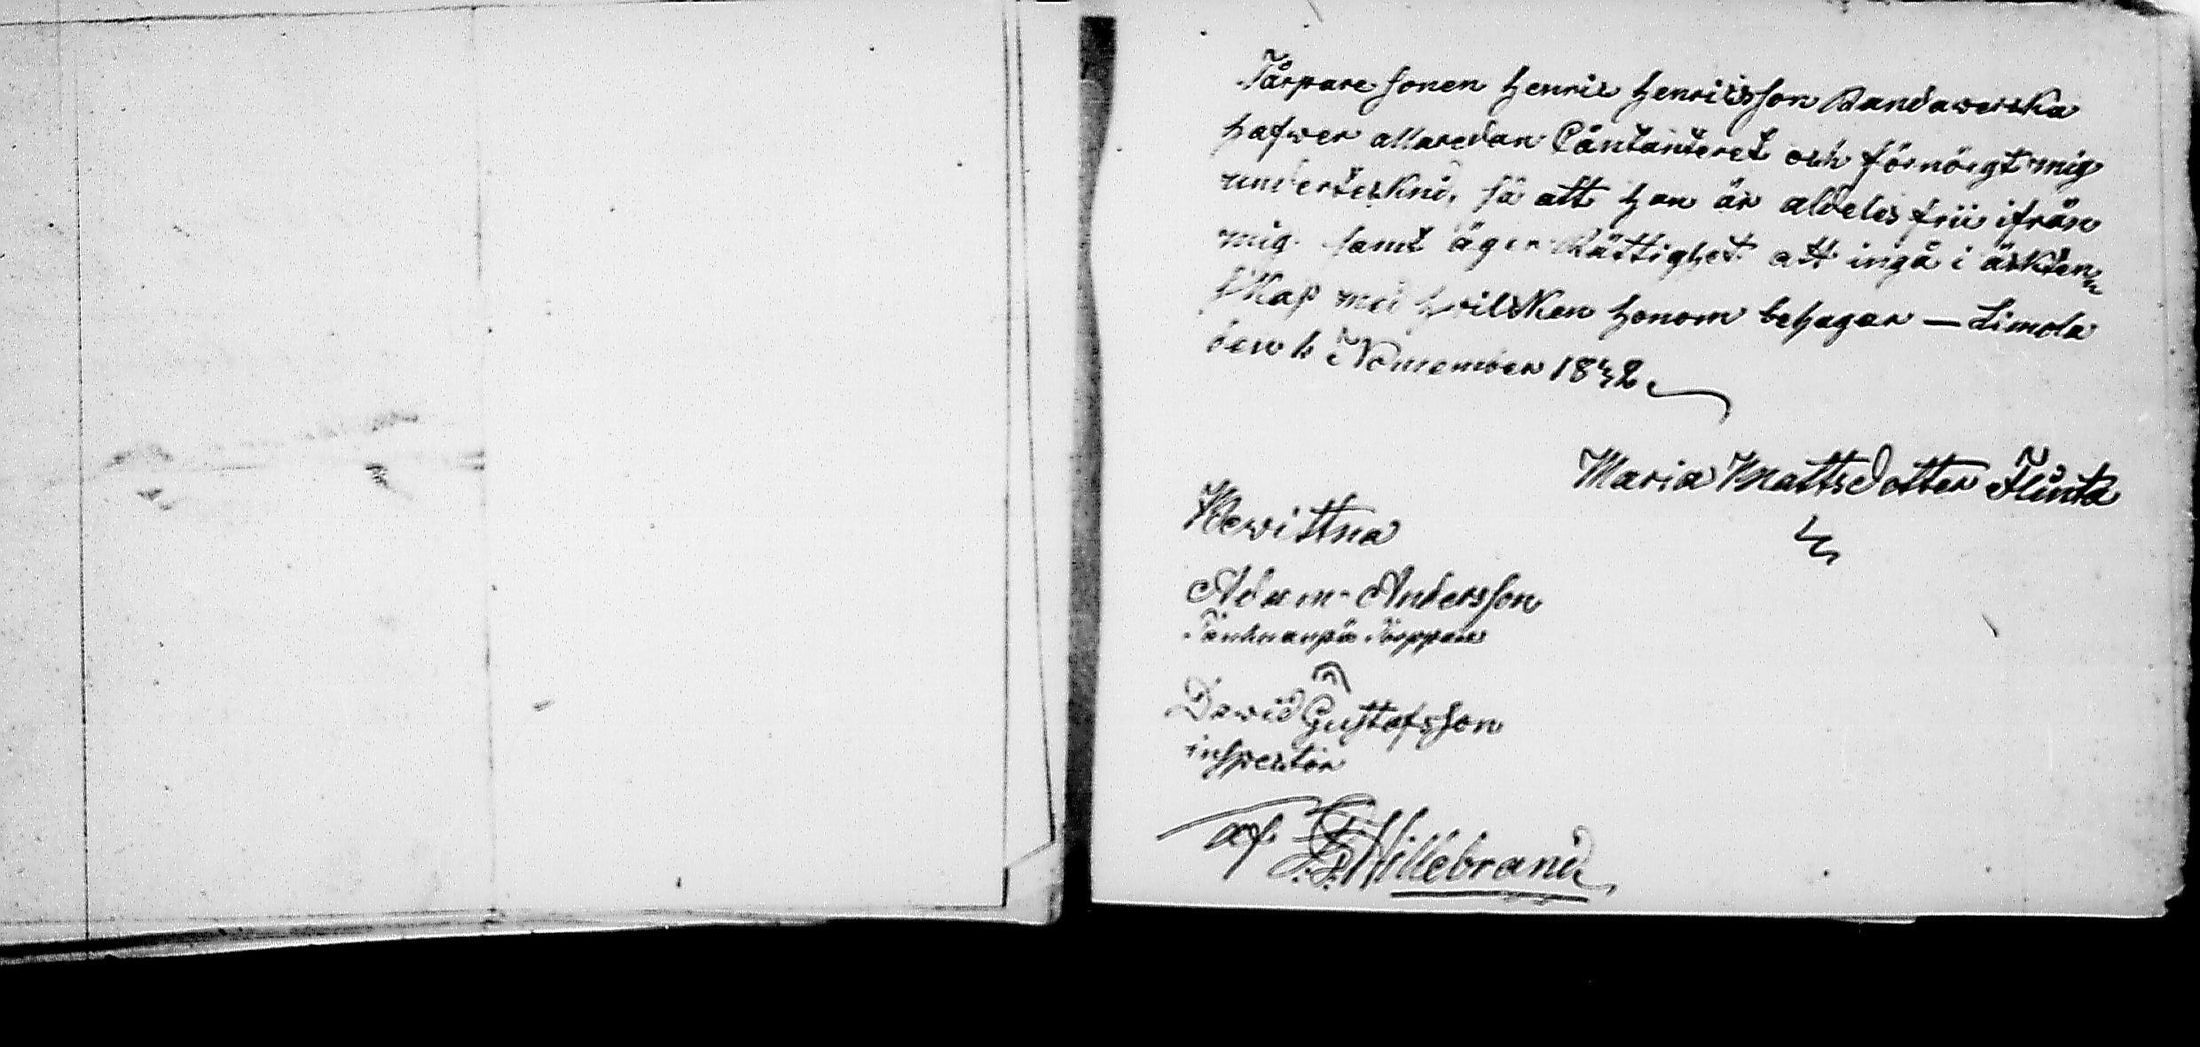 Tårpare sonen Henric Henricsson Randawerska
hafwer allaredan Cåntanteret och förnöigt mig
underteckni, så att han är aldeles frii ifrån
mig samt äger Rättighet att ingå i äckten
skap med hvilcken honom behagar — Limola
den 6 November 1842
Maria Mattsdotter Flinta
Bewittna
Adam Andersson
Torppare
David Gustafsson
inspector
af Hillebrand